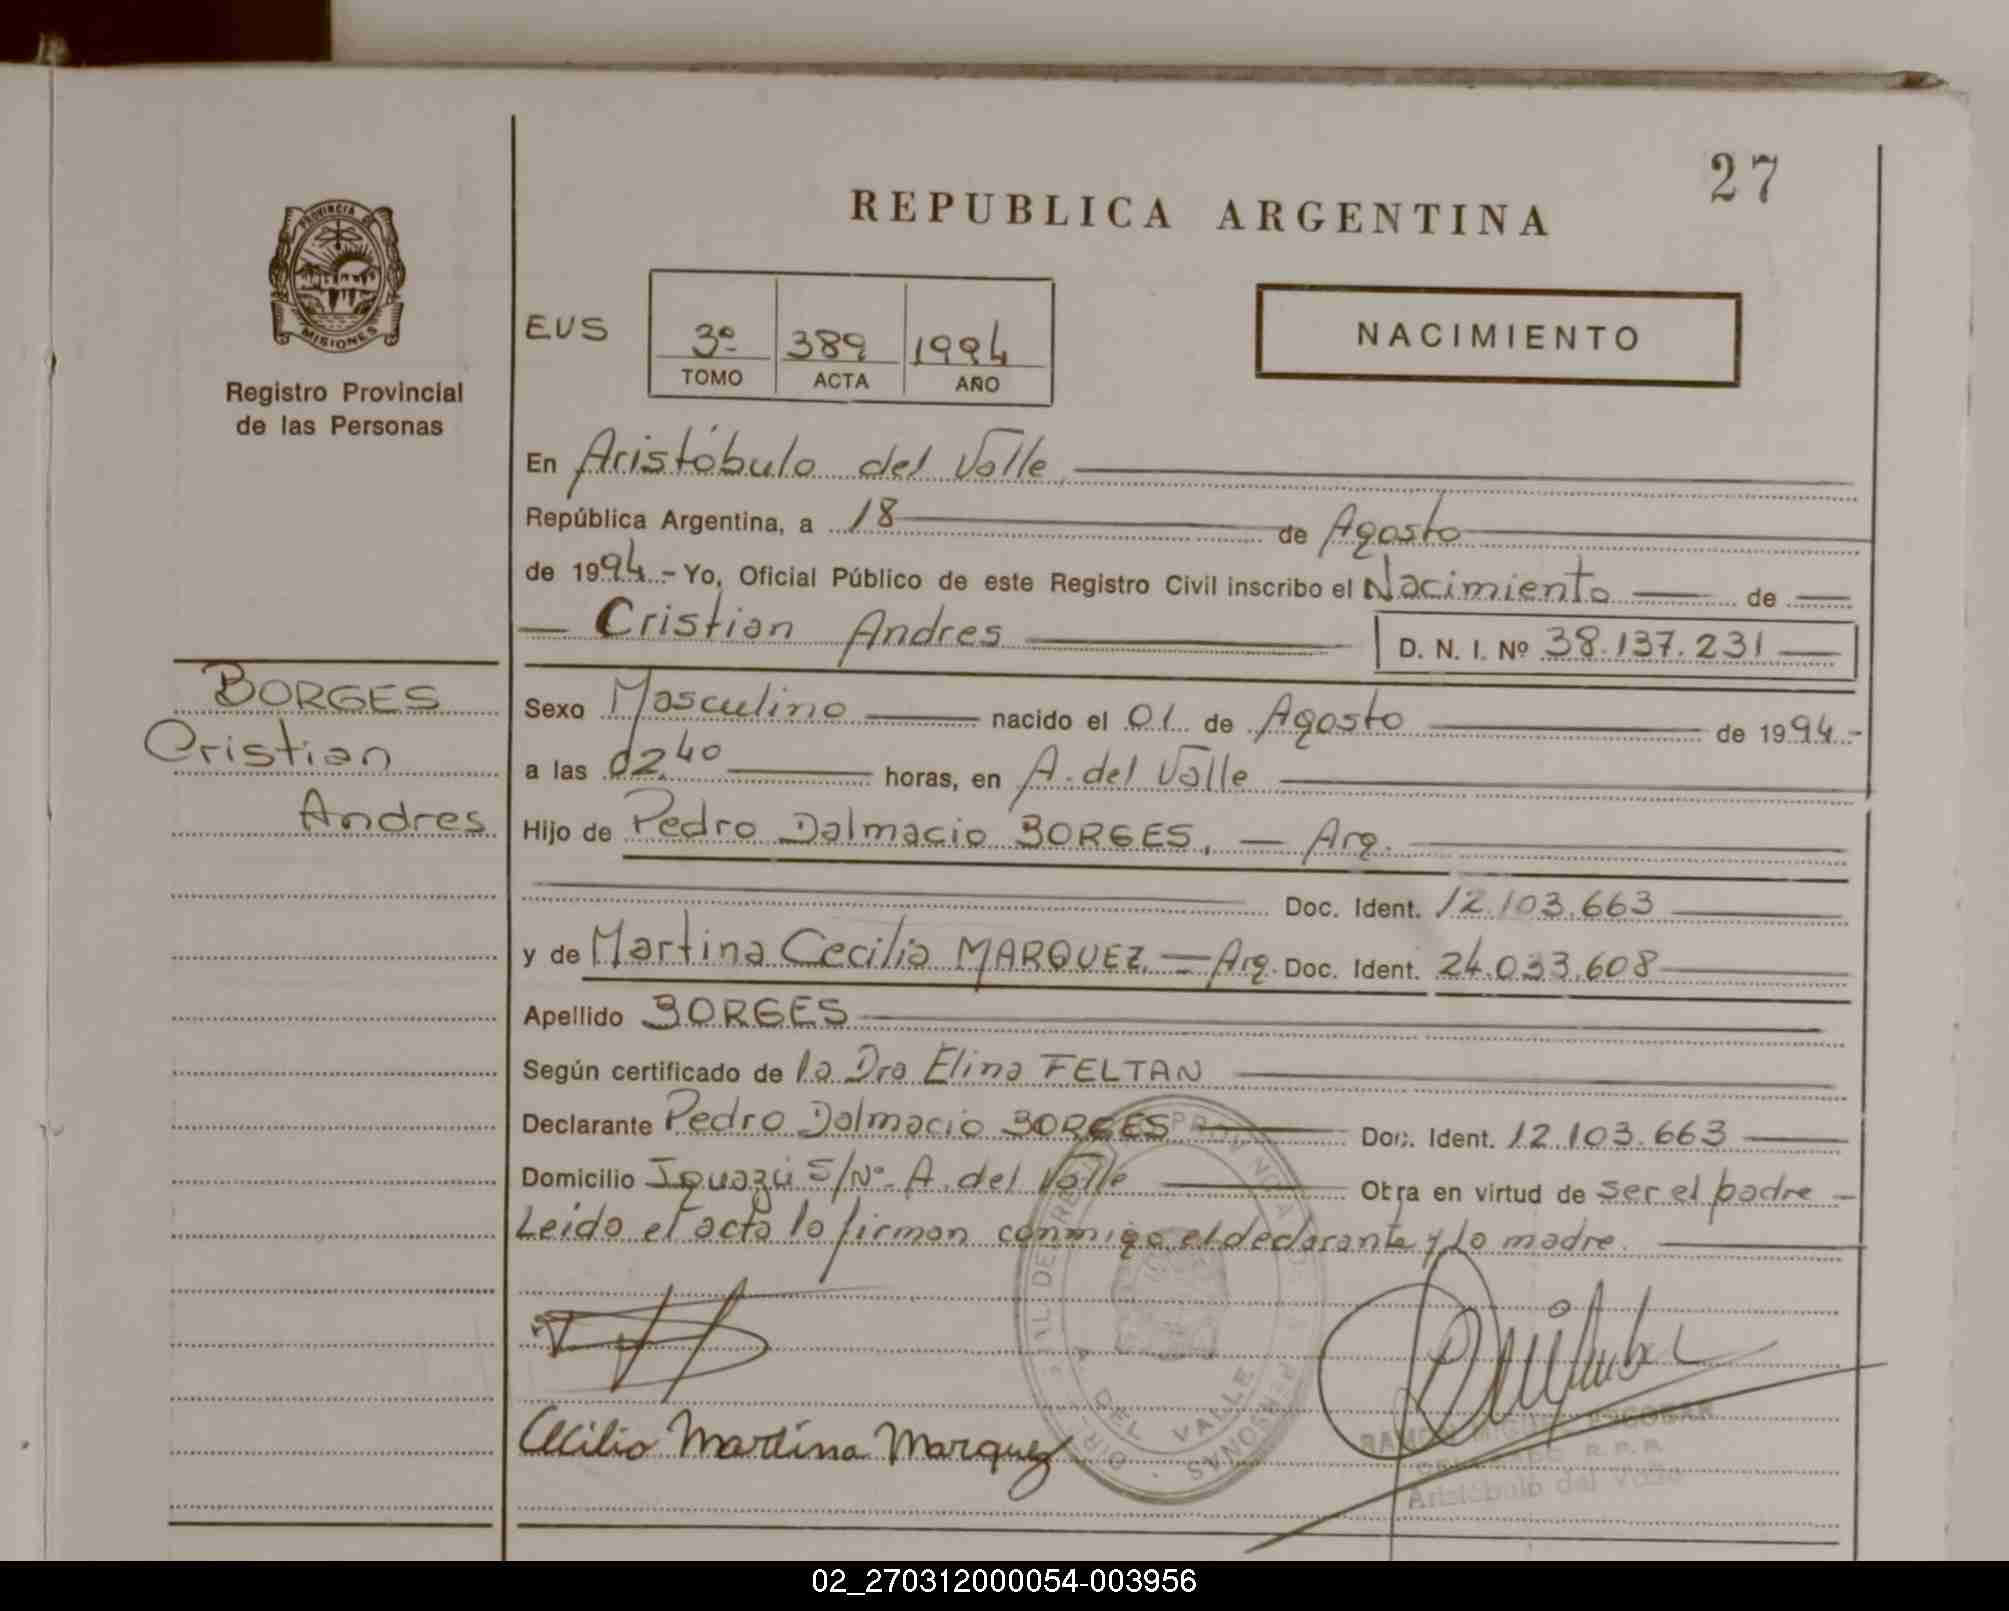 27
REPUBLICA ARGENTINA
PROVINCIA DE
MISIONES
Registro Provincial
de las Personas
EUS
3º 389 1994
TOMO ACTA AÑO
NACIMIENTO
En Aristóbulo del Valle
República Argentina, a 18 de Agosto
de 1994.- Yo, Oficial Público de este Registro Civil inscribo el Nacimiento de
Cristian Andres D. N. I. Nº 38.137.231
BORGES
Cristian
Andres
Sexo Masculino nacido el 01 de Agosto de 1994.-
a las 02.40 horas, en A. del Valle
Hijo de Pedro Dalmacio BORGES. — Arg.
Doc. Ident. 12.103.663
y de Martina Cecilia MARQUEZ. — Arg. Doc. Ident. 24.033.608
Apellido BORGES
Según certificado de la Dra Elina FELTAN
Declarante Pedro Dalmacio BORGES Doc. Ident. 12.103.663
Domicilio Iguazú S/Nº A. del Valle Obra en virtud de ser el padre –
Leido el acta lo firman conmigo el declarante y la madre.
Cecilia Martina Marquez
A. DEL VALLE
PERSONAS
RAMON MIGUEL ESCOBAR
R. P. P.
Aristóbulo del Valle
02_270312000054-003956